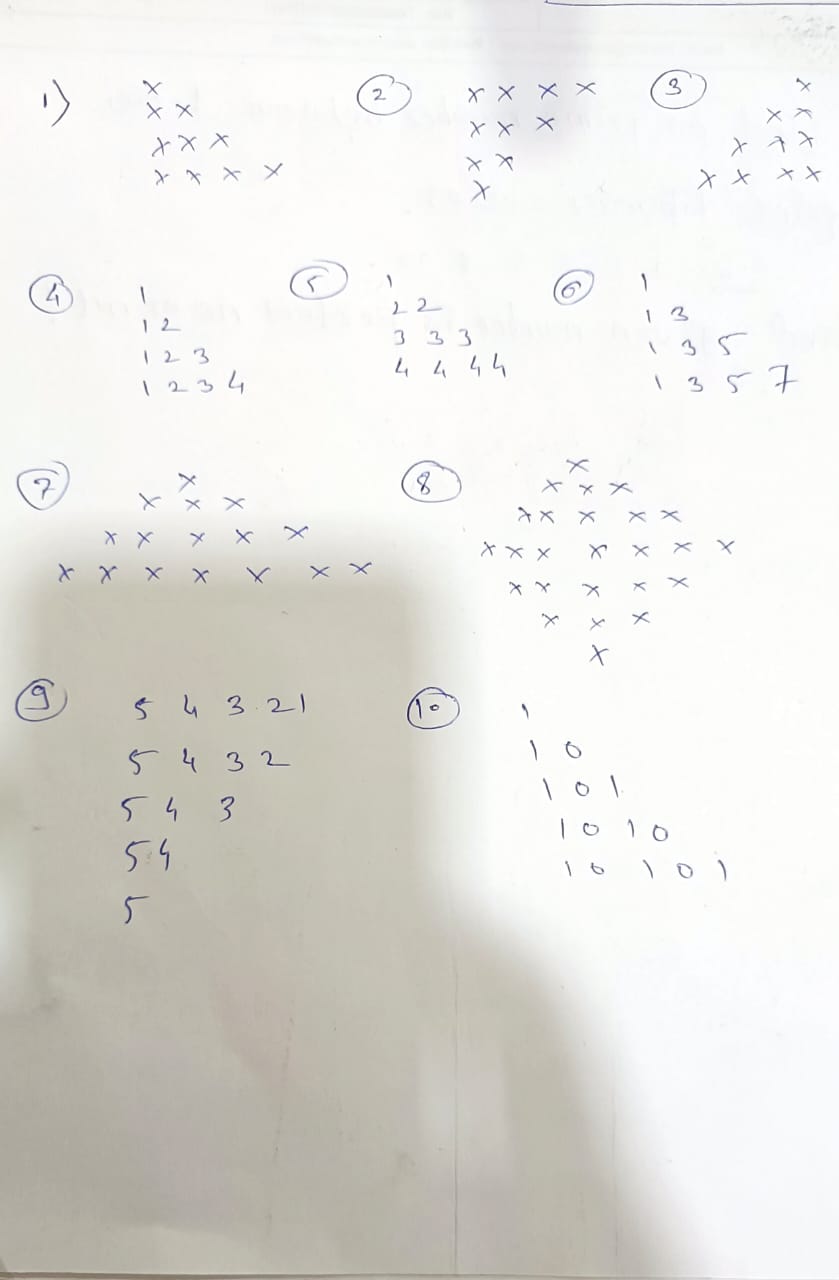 1)
x
x x
x x x
x x x x
2
x x x x
x x x
x x
x
3
x
x x
x x x
x x x x
4
1
1 2
1 2 3
1 2 3 4
5
1
2 2
3 3 3
4 4 4 4
6
1
1 3
1 3 5
1 3 5 7
7
x
x x x
x x x x x
x x x x x x x
8
x
x x x
x x x x x
x x x x x x x
x x x x x
x x x
x
9
5 4 3 2 1
5 4 3 2
5 4 3
5 4
5
10
1
1 0
1 0 1
1 0 1 0
1 0 1 0 1